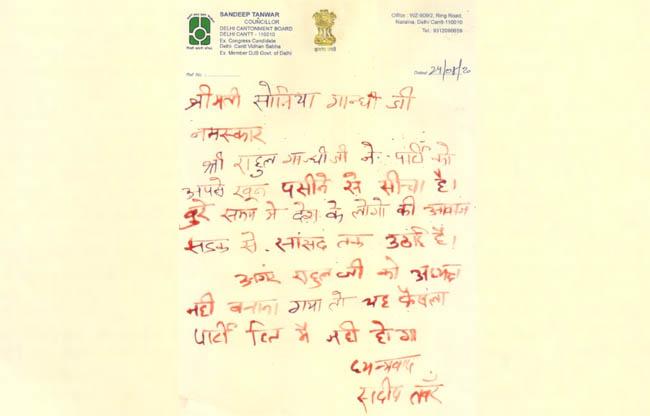 SANDEEP TANWAR
COUNCILLOR
DELHI CANTONMENT BOARD
DELHI CANTT - 110010
Ex. Congress Candidate
Delhi Cantt Vidhan Sabha
Ex. Member DJB Govt. of Delhi
Office : WZ-909/2, Ring Road,
Naraina, Delhi Cantt-110010
Tel.: 9312066659
Ref No.
Dated 24/08/20
श्रीमती सोनिया गान्धी जी
नमस्कार
श्री राहुल गान्धी जी ने पार्टी को
अपने खून पसीने से सींचा है।
बुरे समय मे देश के लोगो की आवाज
सडक से सांसद तक उठाई है।
अगर राहुल जी को अध्यक्ष
नही बनाया गया तो यह फैसला
पार्टी हित मे नही होगा
धन्यवाद
संदीप तवँर